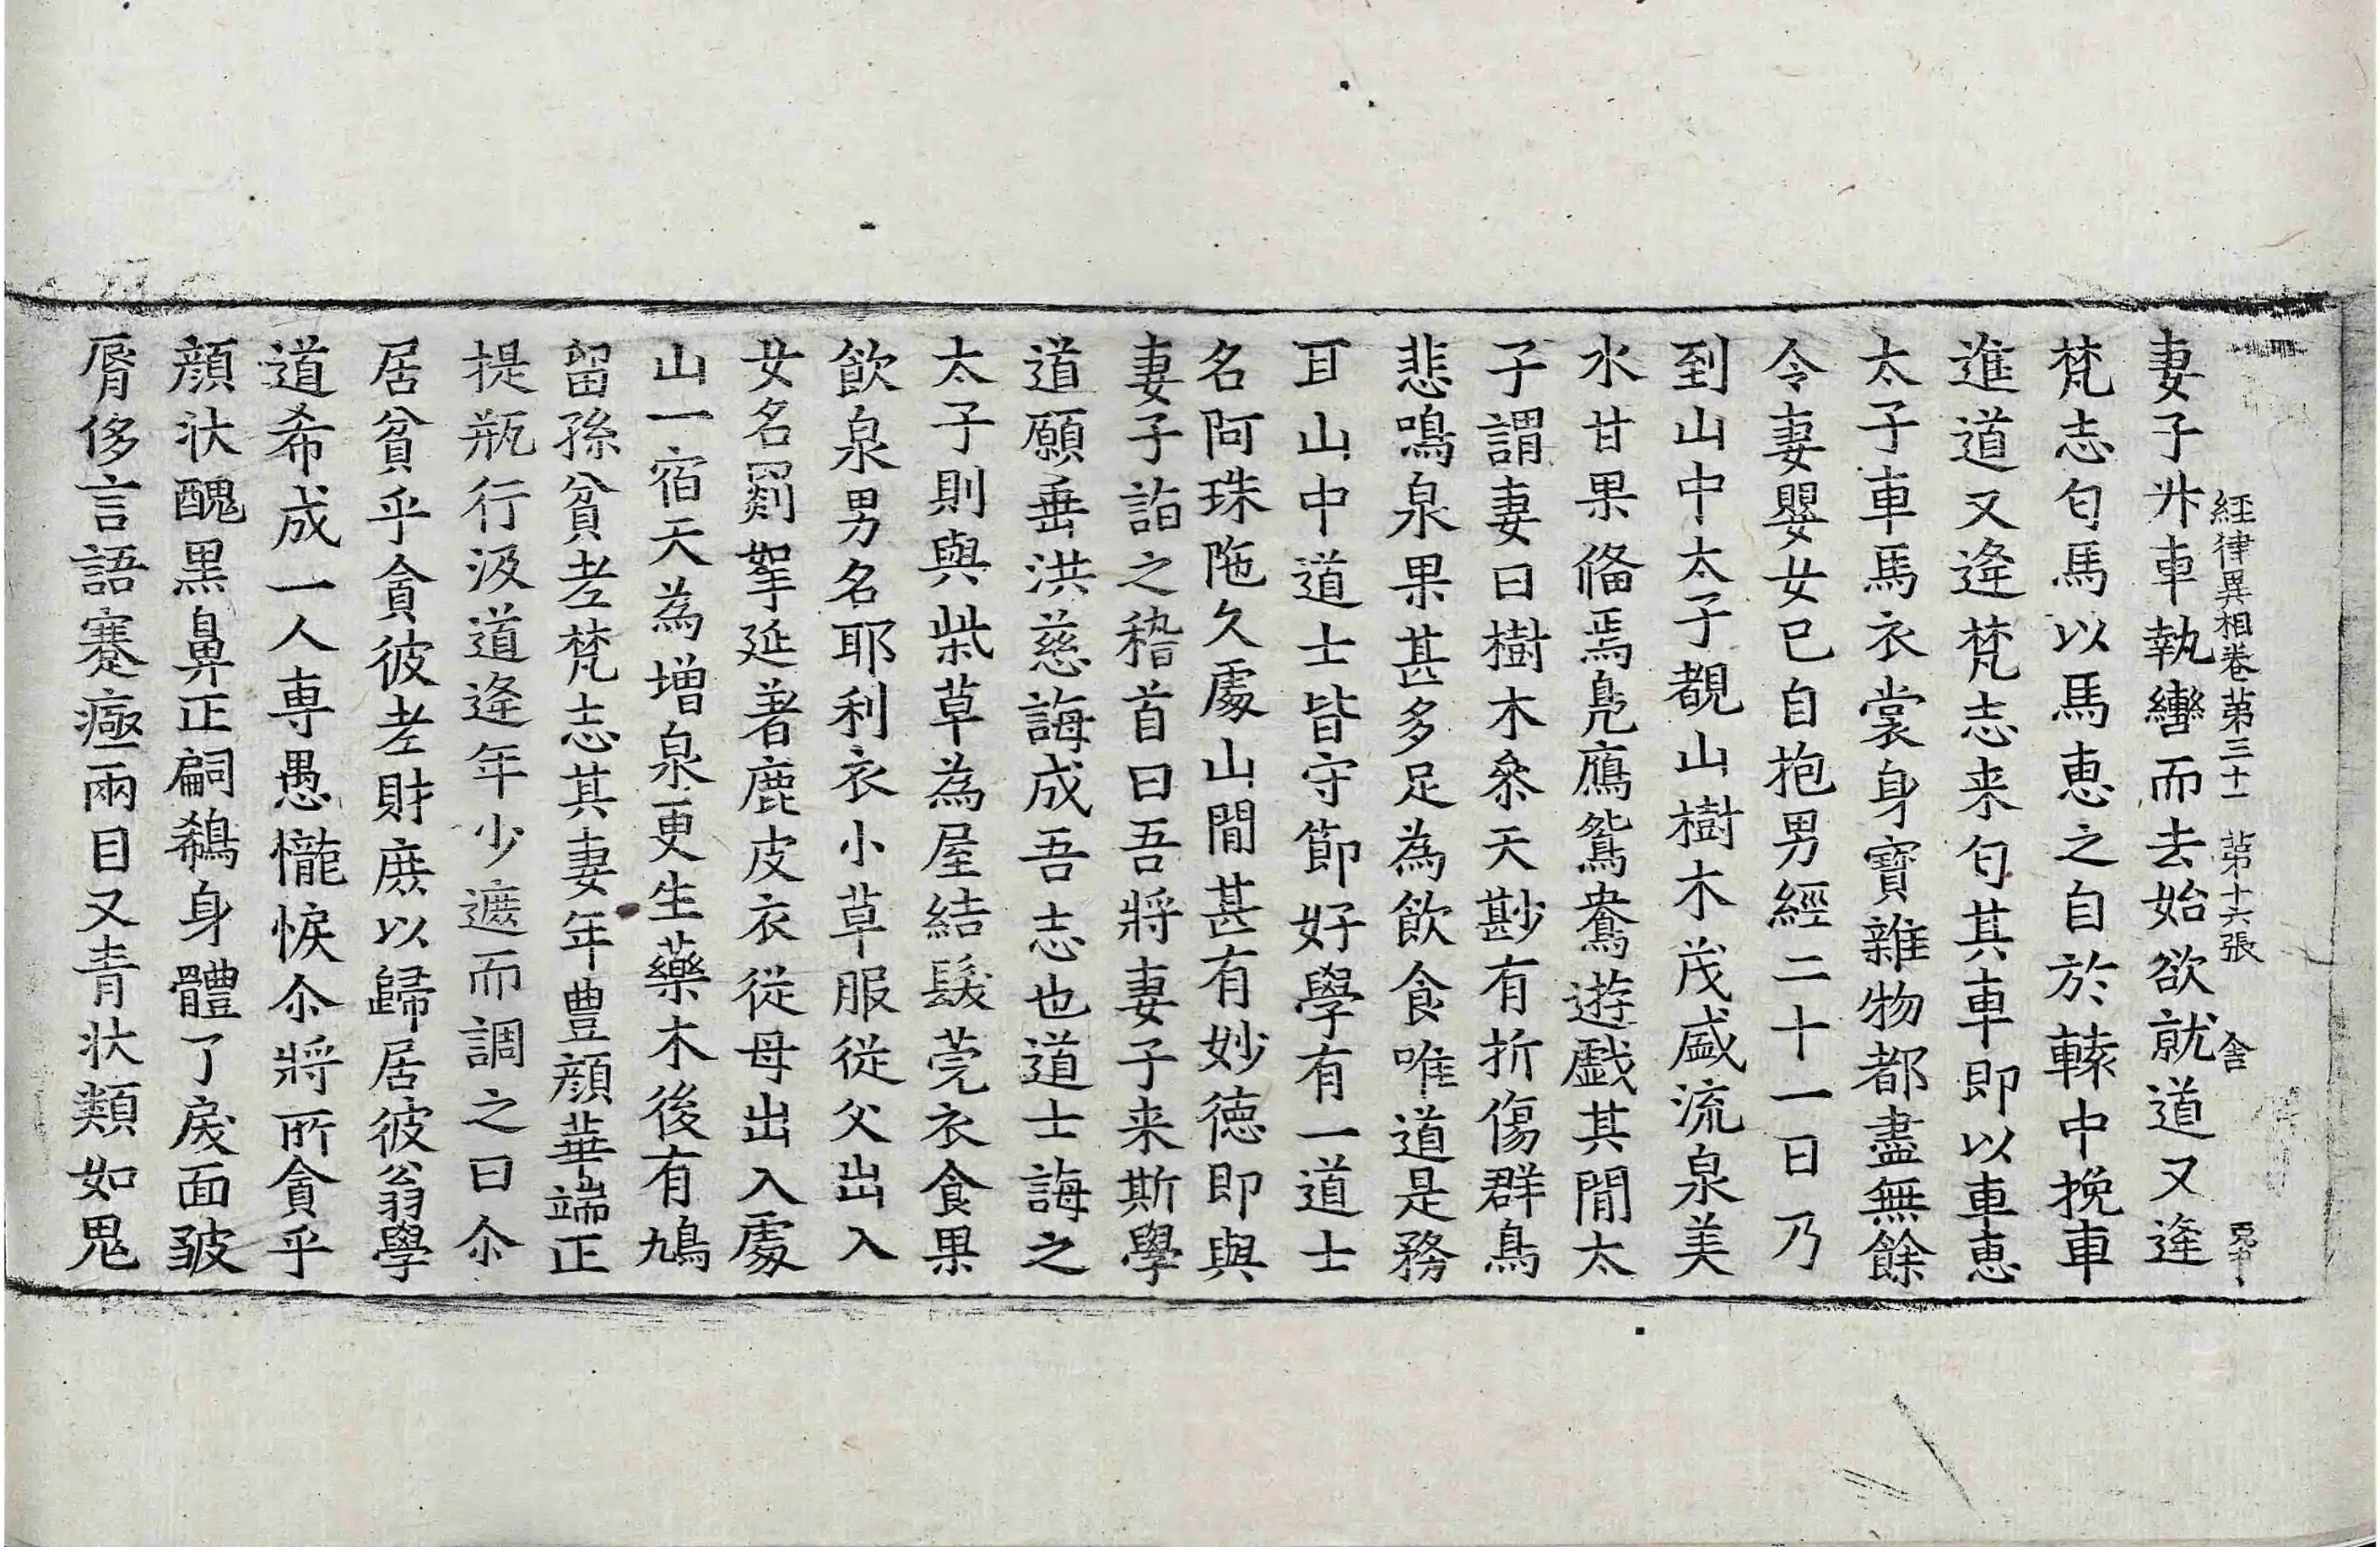 經律異相卷第三十一 第十六張 舍
妻子升車執轡而去始欲就道又逢
梵志匄馬以馬惠之自於轅中挽車
進道又逢梵志来匄其車即以車惠
太子車馬衣裳身寶雜物都盡無餘
令妻嬰女已自抱男經二十一日乃
到山中太子覩山樹木茂盛流泉美
水甘果俻焉鳧鴈鴛鴦遊戯其閒太
子謂妻曰樹木叅天尠有折傷群鳥
悲鳴泉果甚多足為飲食唯道是務
耳山中道士皆守節好學有一道士
名阿珠陁久處山閒甚有妙德即與
妻子詣之稽首曰吾將妻子来斯學
道願垂洪慈誨成吾志也道士誨之
太子則與柴草為屋結髮莞衣食果
飲泉男名耶利衣小草服從父出入
女名罽拏延著鹿皮衣從母出入處
山一宿天為增泉更生藥木後有鳩
留孫貧老梵志其妻年豊顔華端正
提瓶行汲道逢年少遮而調之曰尒
居貧乎貪彼老財庶以歸居彼翁學
道希成一人専愚㦜悷尒將所貪乎
顔狀醜黒鼻正𠪨鵗身體了戾面皺
脣侈言語蹇瘂兩目又青狀類如鬼